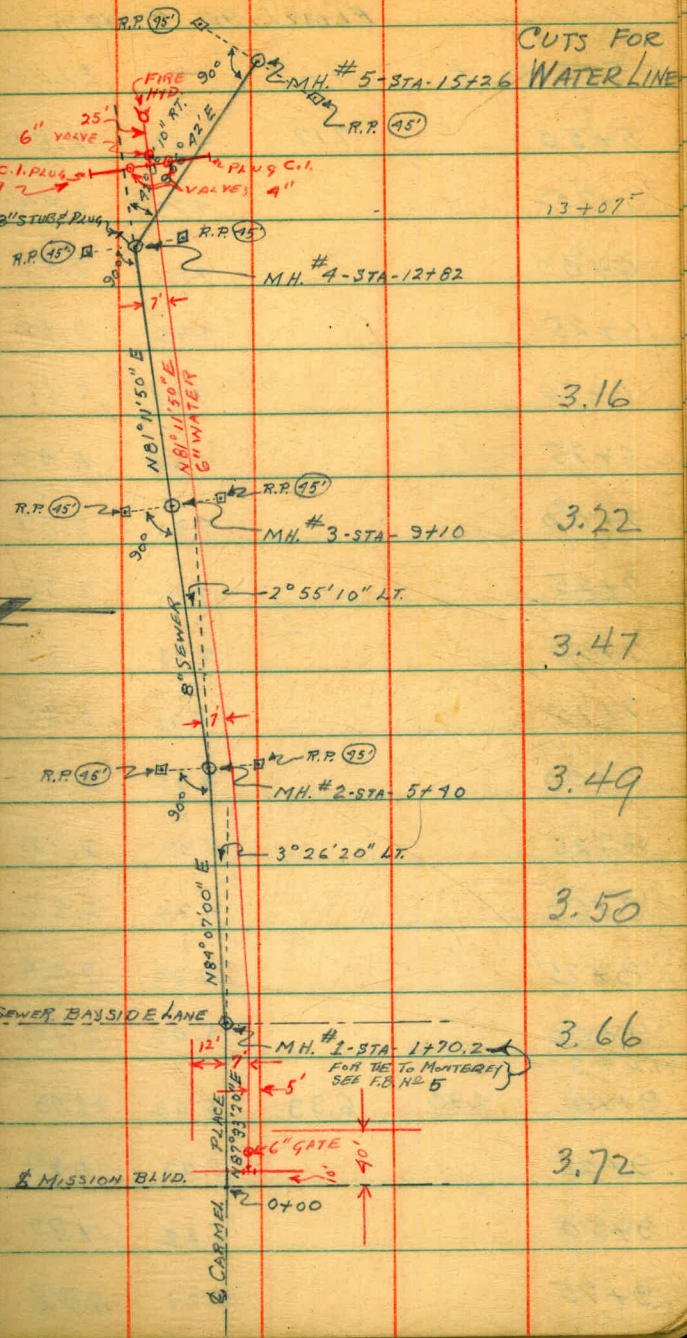 R.P. 45'
CUTS FOR
WATER LINE
90°
MH. #5-STA-15+26
FIRE
HYD.
R.P. 45'
25'
6"
VALVE
10" RT.
42' E
C.I. PLUG
PLUG C.I.
VALVES 4"
13+07
STUB & PLUG
R.P. 45'
R.P. 45'
90°
MH. #4-STA-12+82
7'
N81°11'50" E
N81°11'50" E
6" WATER
3.16
R.P. 45'
R.P. 45'
90°
MH. #3-STA-9+10
3.22
2°55'10" LT.
8" SEWER
3.47
7'
R.P. 45'
R.P. 45'
90°
MH. #2-STA-5+40
3.49
3°26'20" LT.
N84°07'00" E
3.50
SEWER BAYSIDE LANE
MH. #1-STA-1+70.2
3.66
FOR TIE TO MONTEREY
SEE F.B. No 5
12'
7'
5'
N87°33'20" E
6" GATE
40'
10'
3.72
℄ MISSION BLVD.
0+00
℄ CARMEL PLACE